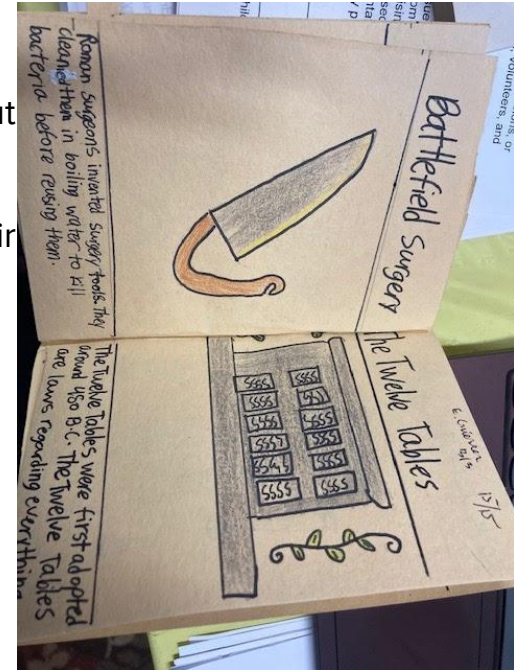 ut
ir
Battlefield Surgery
Roman surgeons invented surgery tools. They
cleaned them in boiling water to kill
bacteria before reusing them.
15/15
The Twelve Tables
The Twelve Tables were first adopted
around 450 B.C. The Twelve Tables
are laws regarding everything
volunteers, and
or